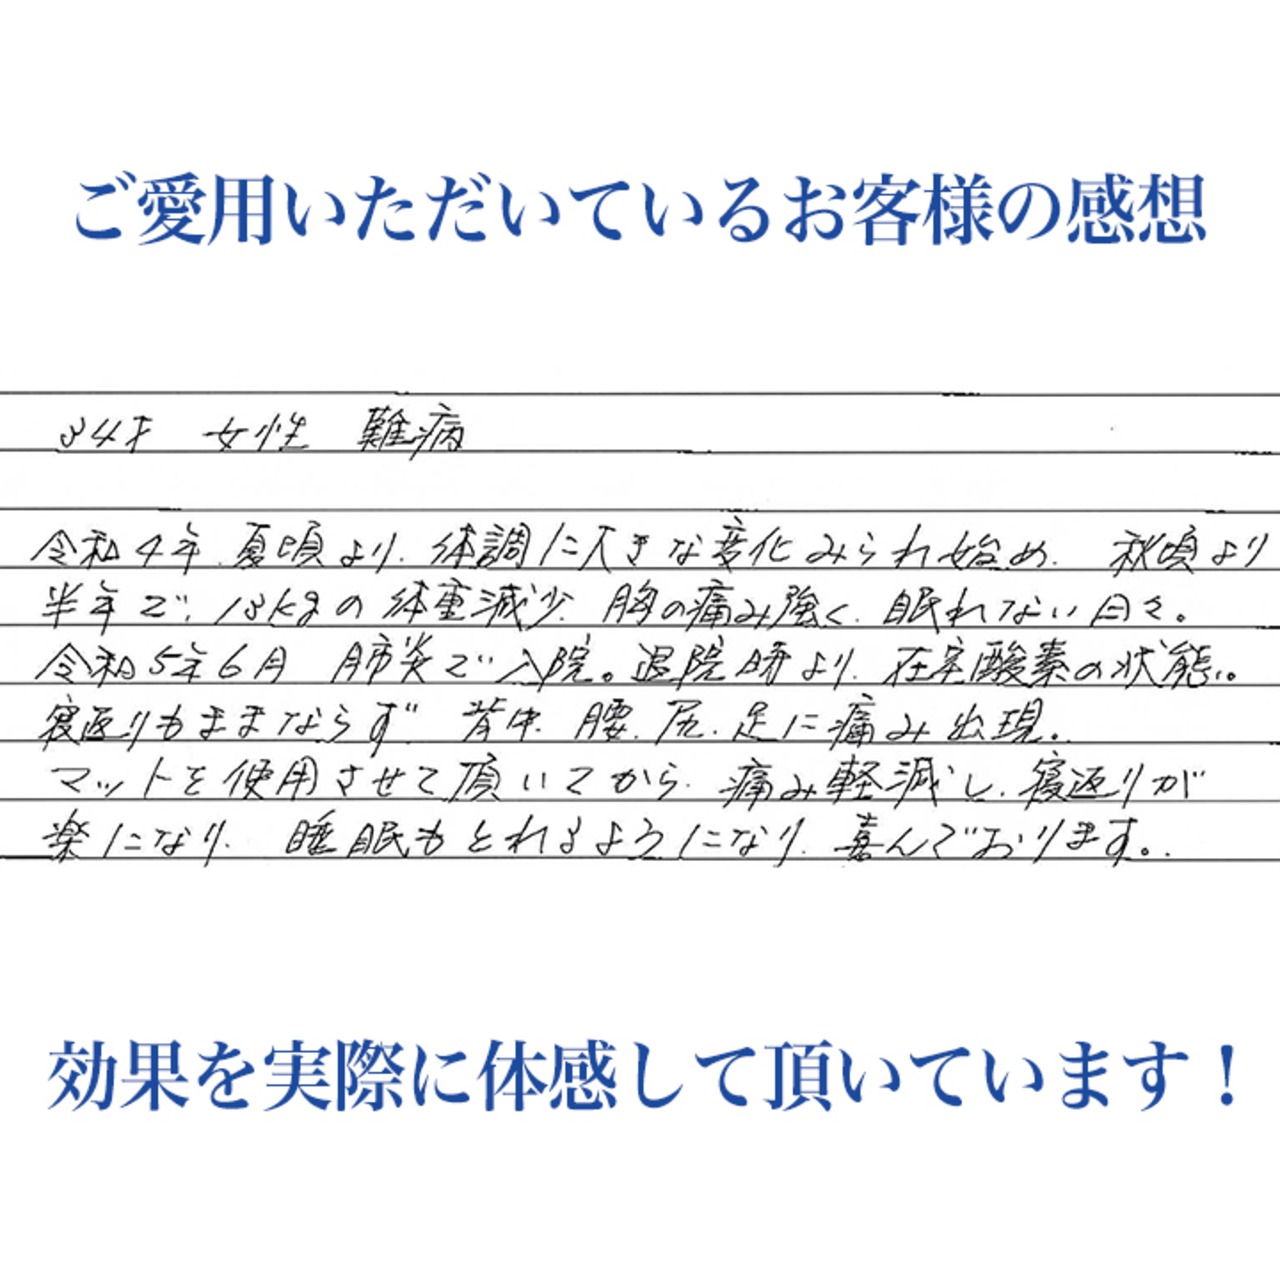 ご愛用いただいているお客様の感想
34才 女性 難病
令和4年.夏頃より.体調に大きな変化みられ始め. 秋頃より
半年で.13kgの体重減少.胸の痛み強く.眠れない日々。
令和5年6月 肺炎で入院。退院時より.在宅酸素の状態。
寝返りもままならず 背中.腰.尻.足に痛み出現。
マットを使用させて頂いてから.痛み軽減し.寝返りが
楽になり. 睡眠もとれるようになり.喜んでおります。
効果を実際に体感して頂いています！